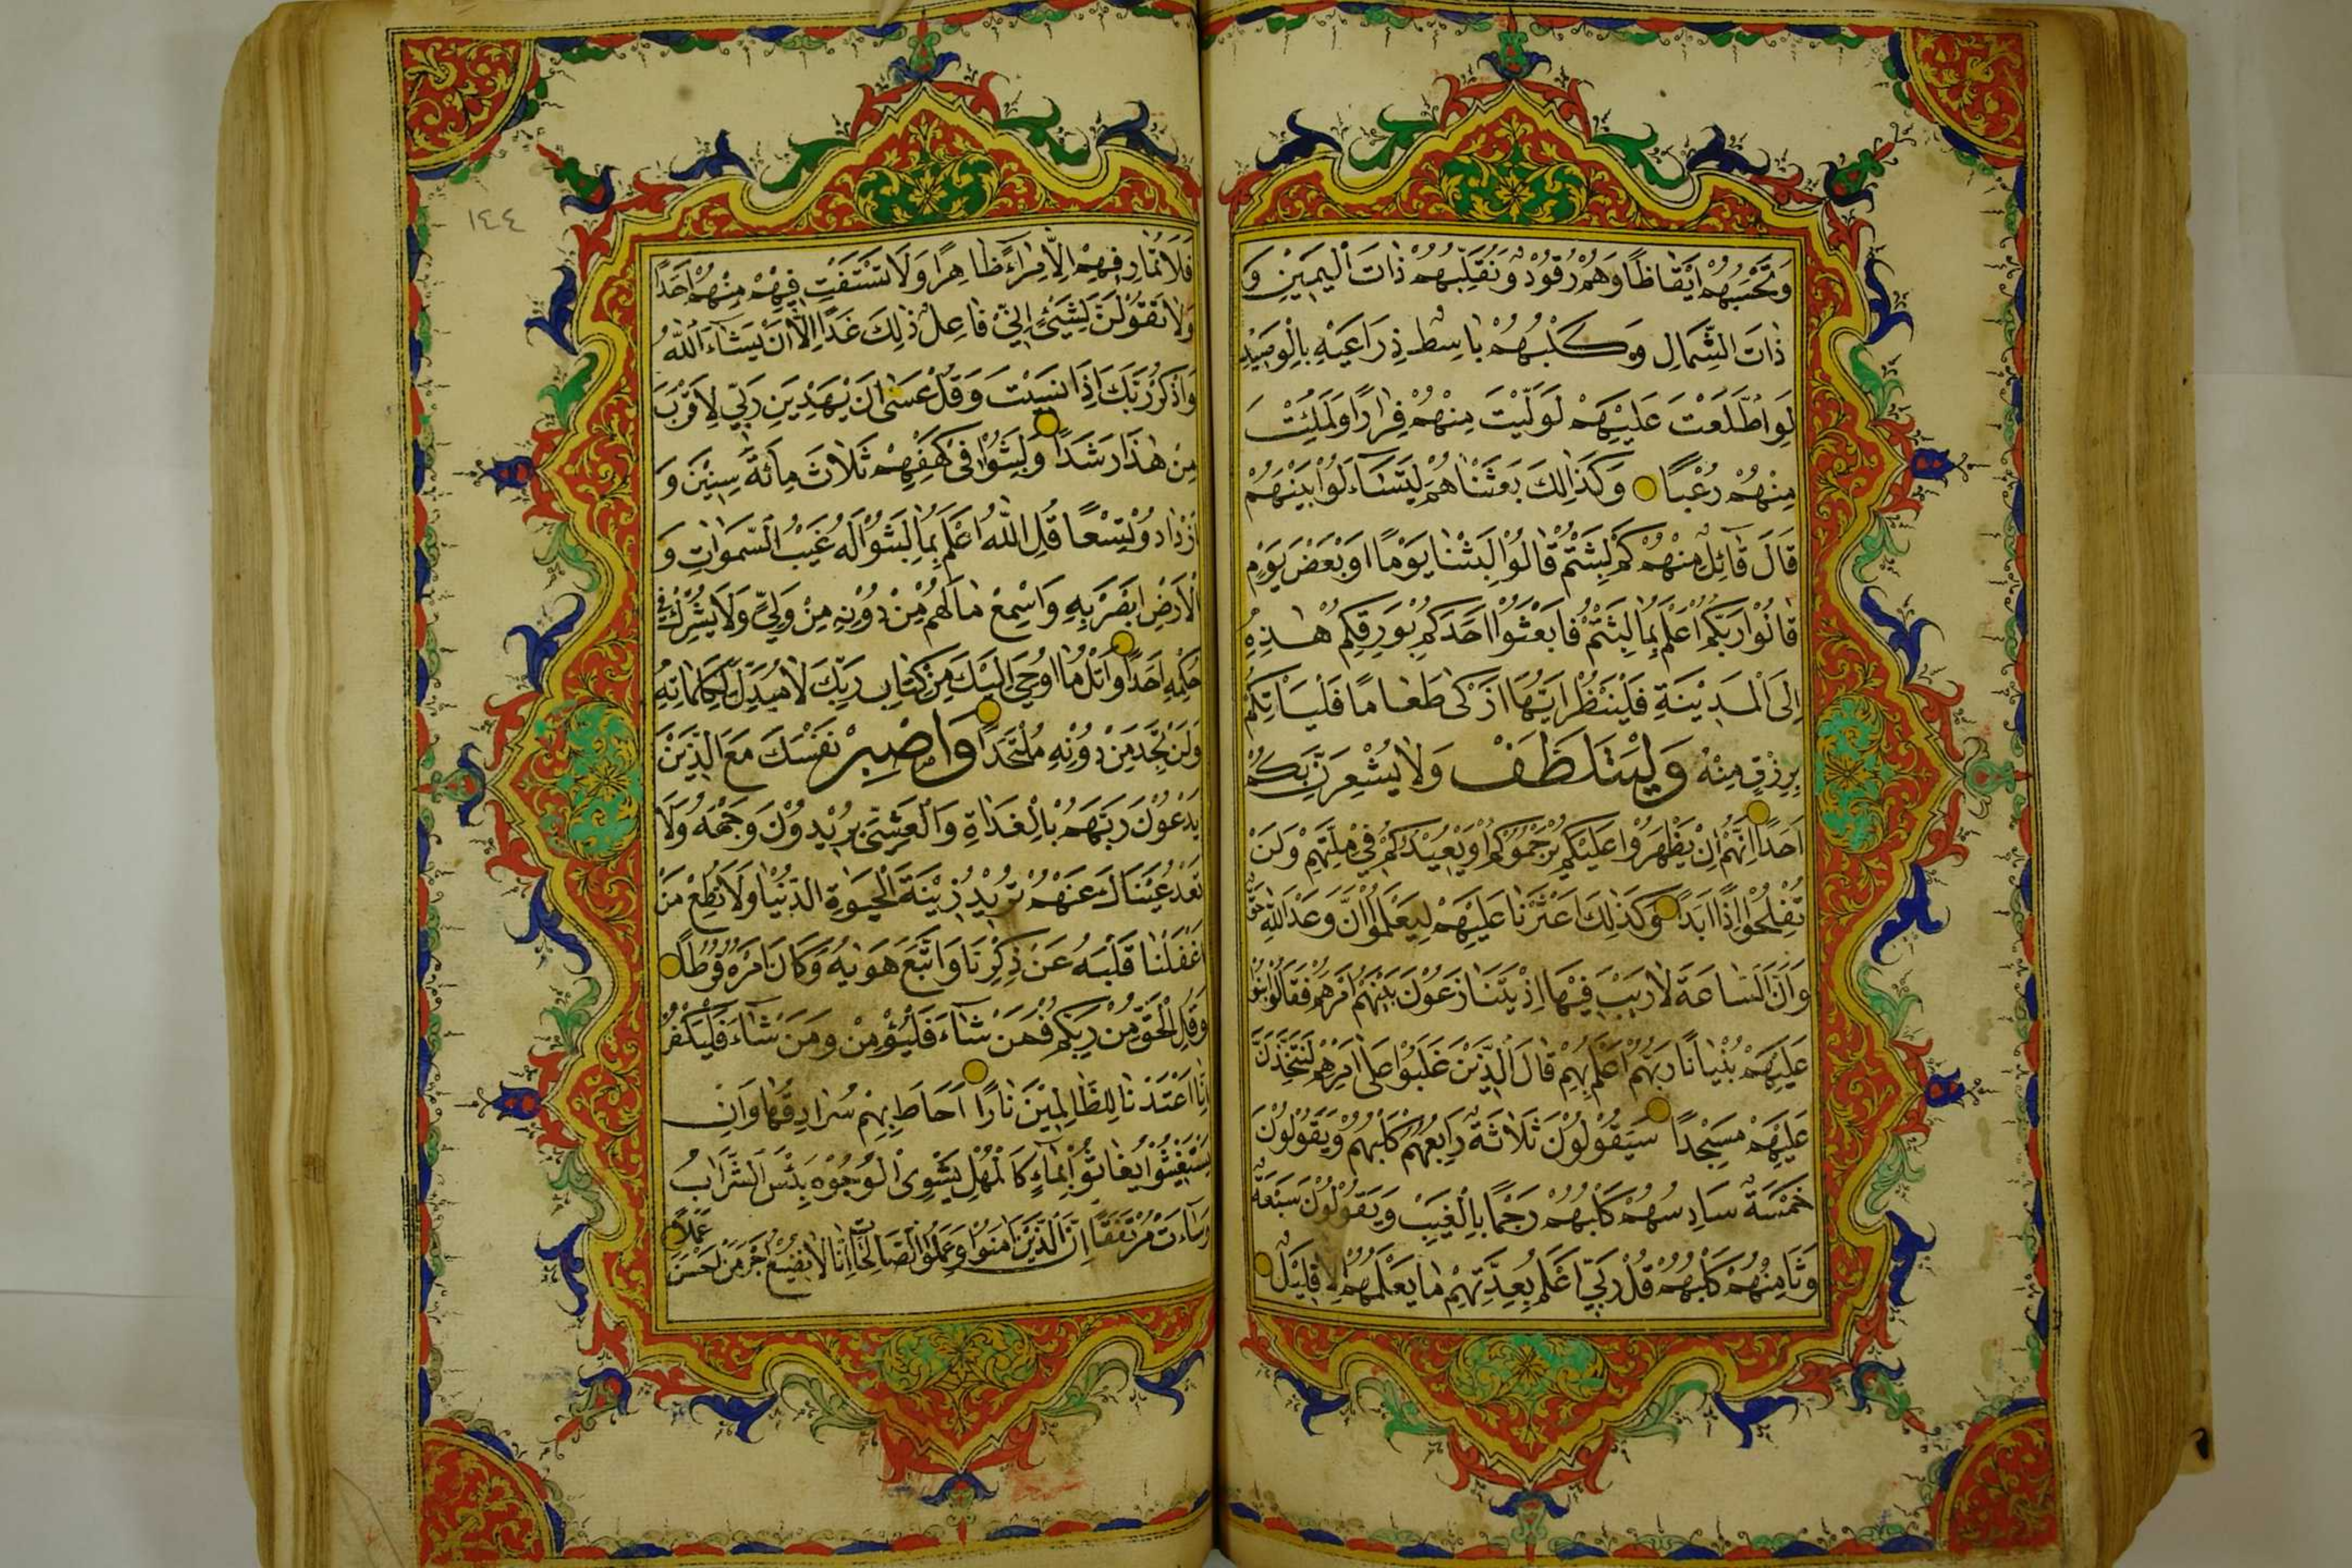 وَتَحْسَبُهُمْ اَيْقَاظًا وَهُمْ رُقُوْدٌ وَنُقَلِّبُهُمْ ذَاتَ الْيَمِيْنِ وَ
ذَاتَ الشِّمَالِ وَكَلْبُهُمْ بَاسِطٌ ذِرَاعَيْهِ بِالْوَصِيْدِ
لَوِ اطَّلَعْتَ عَلَيْهِمْ لَوَلَّيْتَ مِنْهُمْ فِرَارًا وَلَمُلِئْتَ
مِنْهُمْ رُعْبًا وَكَذَالِكَ بَعَثْنَاهُمْ لِيَتَسَآءَلُوْا بَيْنَهُمْ
قَالَ قَآئِلٌ مِنْهُمْ كَمْ لَبِثْتُمْ قَالُوْا لَبِثْنَا يَوْمًا اَوْ بَعْضَ يَوْمٍ
قَالُوْا رَبُّكُمْ اَعْلَمُ بِمَا لَبِثْتُمْ فَابْعَثُوْا اَحَدَكُمْ بِوَرِقِكُمْ هٰذِهِ
اِلَى الْمَدِيْنَةِ فَلْيَنْظُرْ اَيُّهَا اَزْكٰى طَعَامًا فَلْيَاْتِكُمْ
بِرِزْقٍ مِنْهُ وَلْيَتَلَطَّفْ وَلَا يُشْعِرَنَّ بِكُمْ
اَحَدًا اِنَّهُمْ اِنْ يَظْهَرُوْا عَلَيْكُمْ يَرْجُمُوْكُمْ اَوْ يُعِيْدُكُمْ فِيْ مِلَّتِهِمْ وَلَنْ
تُفْلِحُوْا اِذًا اَبَدًا وَكَذٰلِكَ اَعْثَرْنَا عَلَيْهِمْ لِيَعْلَمُوْا اَنَّ وَعْدَ اللهِ حَقٌّ
وَاَنَّ السَّاعَةَ لَا رَيْبَ فِيْهَا اِذْ يَتَنَازَعُوْنَ بَيْنَهُمْ اَمْرَهُمْ فَقَالُوْا ابْنُوْا
عَلَيْهِمْ بُنْيَانًا رَبُّهُمْ اَعْلَمُ بِهِمْ قَالَ الَّذِيْنَ غَلَبُوْا عَلٰى اَمْرِهِمْ لَنَتَّخِذَنَّ
عَلَيْهِمْ مَسْجِدًا سَيَقُوْلُوْنَ ثَلَاثَةٌ رَابِعُهُمْ كَلْبُهُمْ وَيَقُوْلُوْنَ
خَمْسَةٌ سَادِسُهُمْ كَلْبُهُمْ رَجْمًا بِالْغَيْبِ وَيَقُوْلُوْنَ سَبْعَةٌ
وَثَامِنُهُمْ كَلْبُهُمْ قُلْ رَبِّيْ اَعْلَمُ بِعِدَّتِهِمْ مَا يَعْلَمُهُمْ اِلَّا قَلِيْلٌ
١٤٤
فَلَا تُمَارِ فِيْهِمْ اِلَّا مِرَآءً ظَاهِرًا وَلَا تَسْتَفْتِ فِيْهِمْ مِنْهُمْ اَحَدًا
وَلَا تَقُوْلَنَّ لِشَيْئٍ اِنِّيْ فَاعِلٌ ذٰلِكَ غَدًا اِلَّا اَنْ يَشَآءَ اللهُ
وَاذْكُرْ رَبَّكَ اِذَا نَسِيْتَ وَقُلْ عَسٰى اَنْ يَهْدِيَنِ رَبِّيْ لِاَقْرَبَ
مِنْ هٰذَا رَشَدًا وَلَبِثُوْا فِيْ كَهْفِهِمْ ثَلَاثَ مِائَةٍ سِنِيْنَ وَ
ازْدَادُوْا تِسْعًا قُلِ اللهُ اَعْلَمُ بِمَا لَبِثُوْا لَهُ غَيْبُ السَّمٰوَاتِ وَ
الْاَرْضِ اَبْصِرْ بِهِ وَاَسْمِعْ مَا لَهُمْ مِنْ دُوْنِهِ مِنْ وَلِيٍّ وَلَا يُشْرِكُ فِيْ
حُكْمِهِ اَحَدًا وَاتْلُ مَا اُوْحِيَ اِلَيْكَ مِنْ كِتَابِ رَبِّكَ لَا مُبَدِّلَ لِكَلِمَاتِهِ
وَلَنْ تَجِدَ مِنْ دُوْنِهِ مُلْتَحَدًا وَاصْبِرْ نَفْسَكَ مَعَ الَّذِيْنَ
يَدْعُوْنَ رَبَّهُمْ بِالْغَدَاةِ وَالْعَشِيِّ يُرِيْدُوْنَ وَجْهَهُ وَلَا
تَعْدُ عَيْنَاكَ عَنْهُمْ تُرِيْدُ زِيْنَةَ الْحَيٰوةِ الدُّنْيَا وَلَا تُطِعْ مَنْ
اَغْفَلْنَا قَلْبَهُ عَنْ ذِكْرِنَا وَاتَّبَعَ هَوٰيهُ وَكَانَ اَمْرُهُ فُرُطًا
وَقُلِ الْحَقُّ مِنْ رَبِّكُمْ فَمَنْ شَآءَ فَلْيُؤْمِنْ وَمَنْ شَآءَ فَلْيَكْفُرْ
اِنَّا اَعْتَدْنَا لِلظَّالِمِيْنَ نَارًا اَحَاطَ بِهِمْ سُرَادِقُهَا وَاِنْ
يَسْتَغِيْثُوْا يُغَاثُوْا بِمَآءٍ كَالْمُهْلِ يَشْوِى الْوُجُوْهَ بِئْسَ الشَّرَابُ
وَسَآءَتْ مُرْتَفَقًا اِنَّ الَّذِيْنَ اٰمَنُوْا وَعَمِلُوْا الصَّالِحَاتِ اِنَّا لَا نُضِيْعُ اَجْرَ مَنْ اَحْسَنَ
عَمَلًا